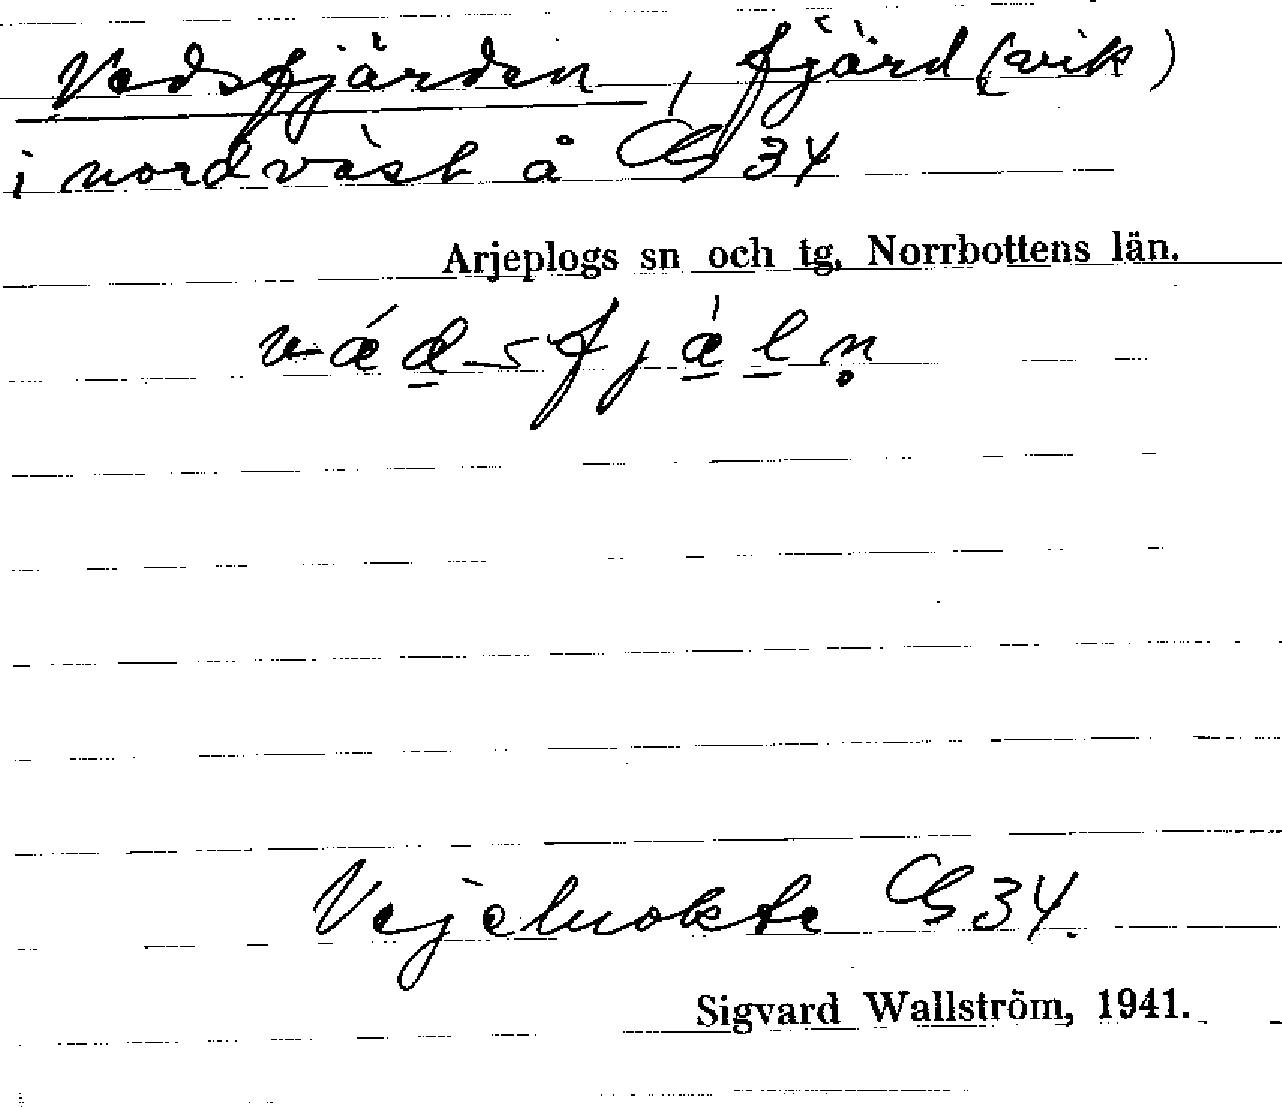 Vedsfjärden, fjärd (vik)
i nordväst å G 34
Arjeplogs sn och tg, Norrbottens län.
vǽd-sfjǽln̥
Vejeluokte G 34.
Sigvard Wallström, 1941.